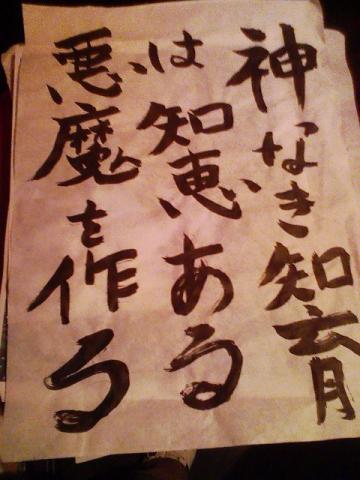 神なき知育
は知恵ある
悪魔を作る